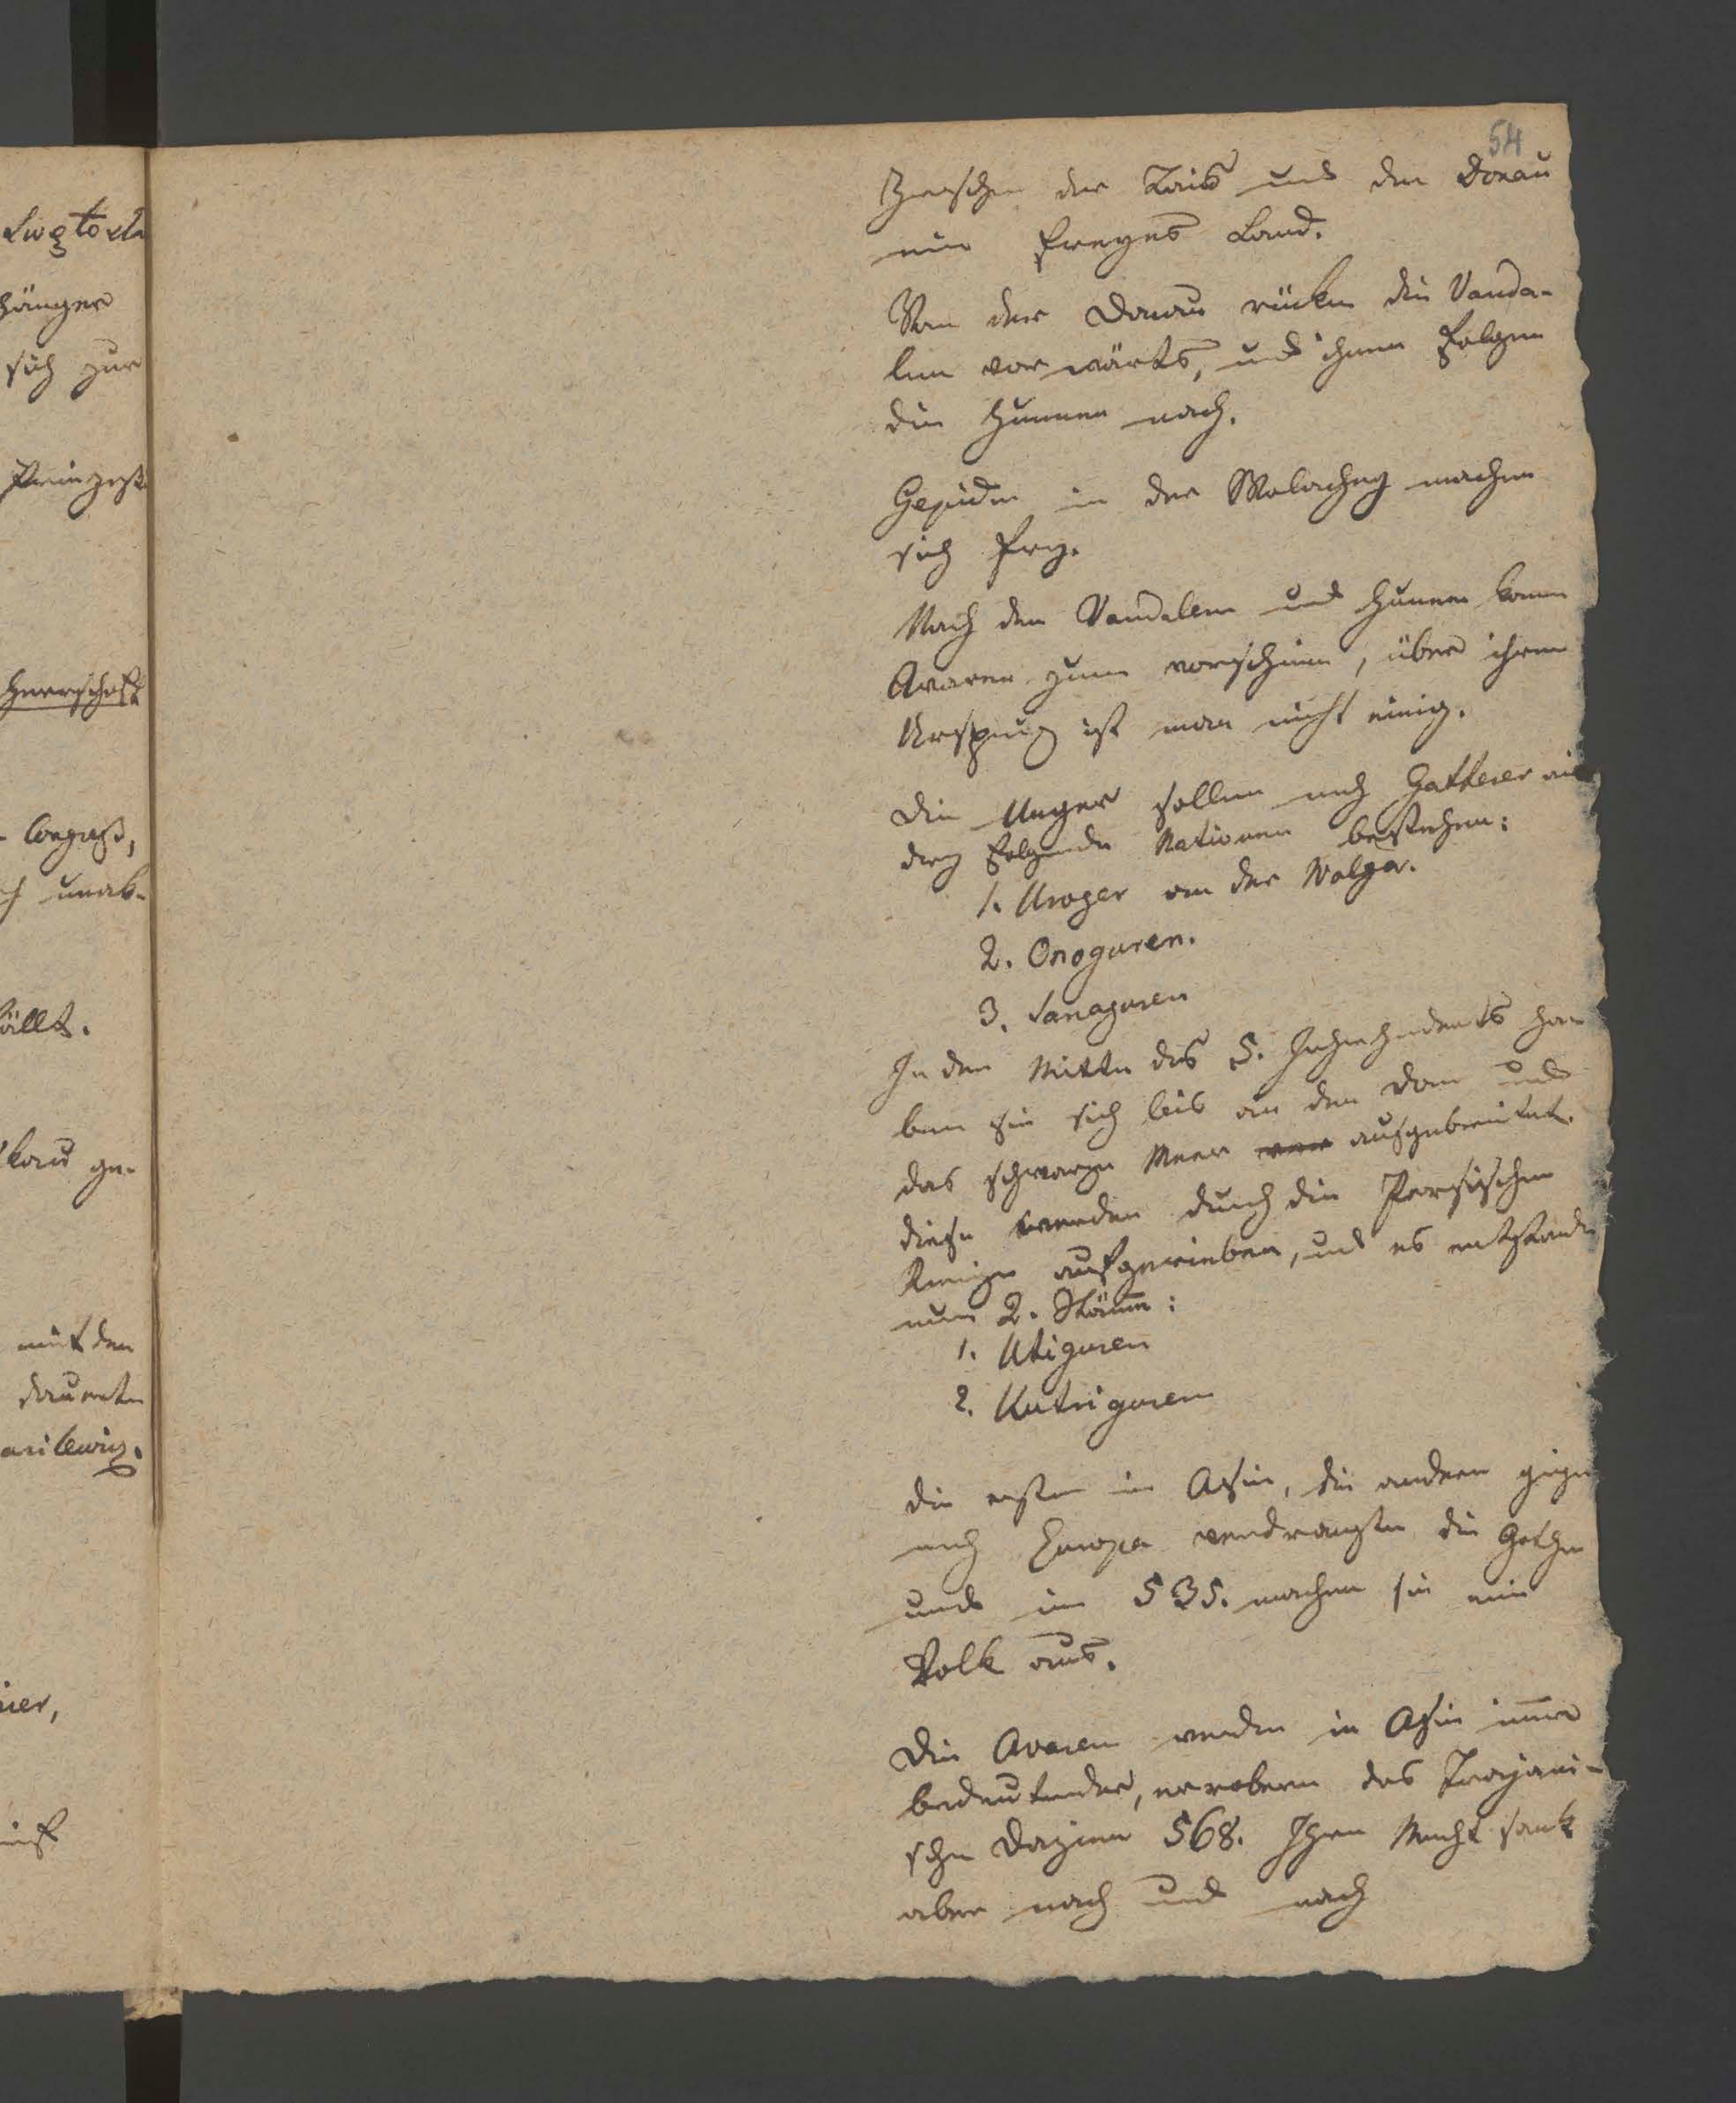 54
Zwischen der Teis und der Donau
ein freyes Land.
Von der Donau rücken die Vanda-
len vorwärts, und ihnen folgen
die Hunnen nach.
Gepiden in der Walachey machen
sich frey.
Nach den Vandalen und Hunnen komen
Avaren zum vorschein, über ihren
Urspung ist man nicht einig.
Die Unger sollen nach Gatterer aus
drey folgenden Nationen bestehen:
1. Uroger an der Wolga.
2. Onoguren.
3. Saraguren
In der Mitte des 5. Jahrhunderts ha-
ben sie sich bis an den Don und
das schwarze Meer ausgebreitet.
diese werden durch die Persischen
Kriege aufgerieben, und es entstanden
nun 2. Stäme:
1. Utiguren
2. Kutriguren
die ersten in Asien, die andern gegen
nach Europa verdrängten die Gothen
und im 535. machen sie ein
Volk aus.
Die Avaren werden in Asien imer
bedeutender, erobern das Trajani-
sche Dazien 568. Ihre Macht sank
aber nach und nach
hänger
sich zur
Prinzess
Herrschaft
fällt.
kau ge-
mit den
dauerte